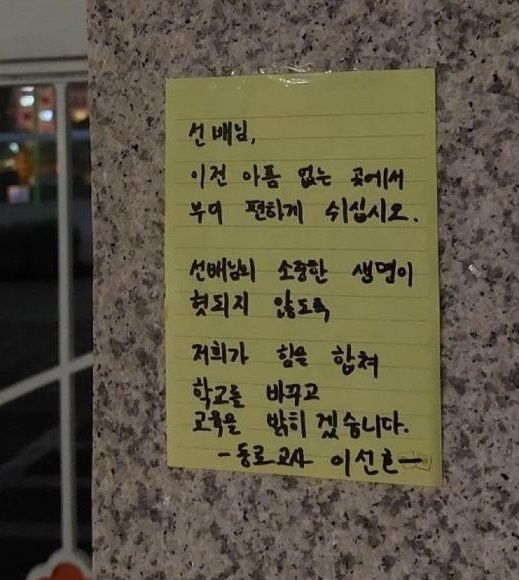 선배님,
이젠 아픔 없는 곳에서
부디 편하게 쉬십시오.
선배님의 소중한 생명이
헛되지 않도록
저희가 힘을 합쳐
학교를 바꾸고
교육을 밝히겠습니다.
-동료교사 이선호